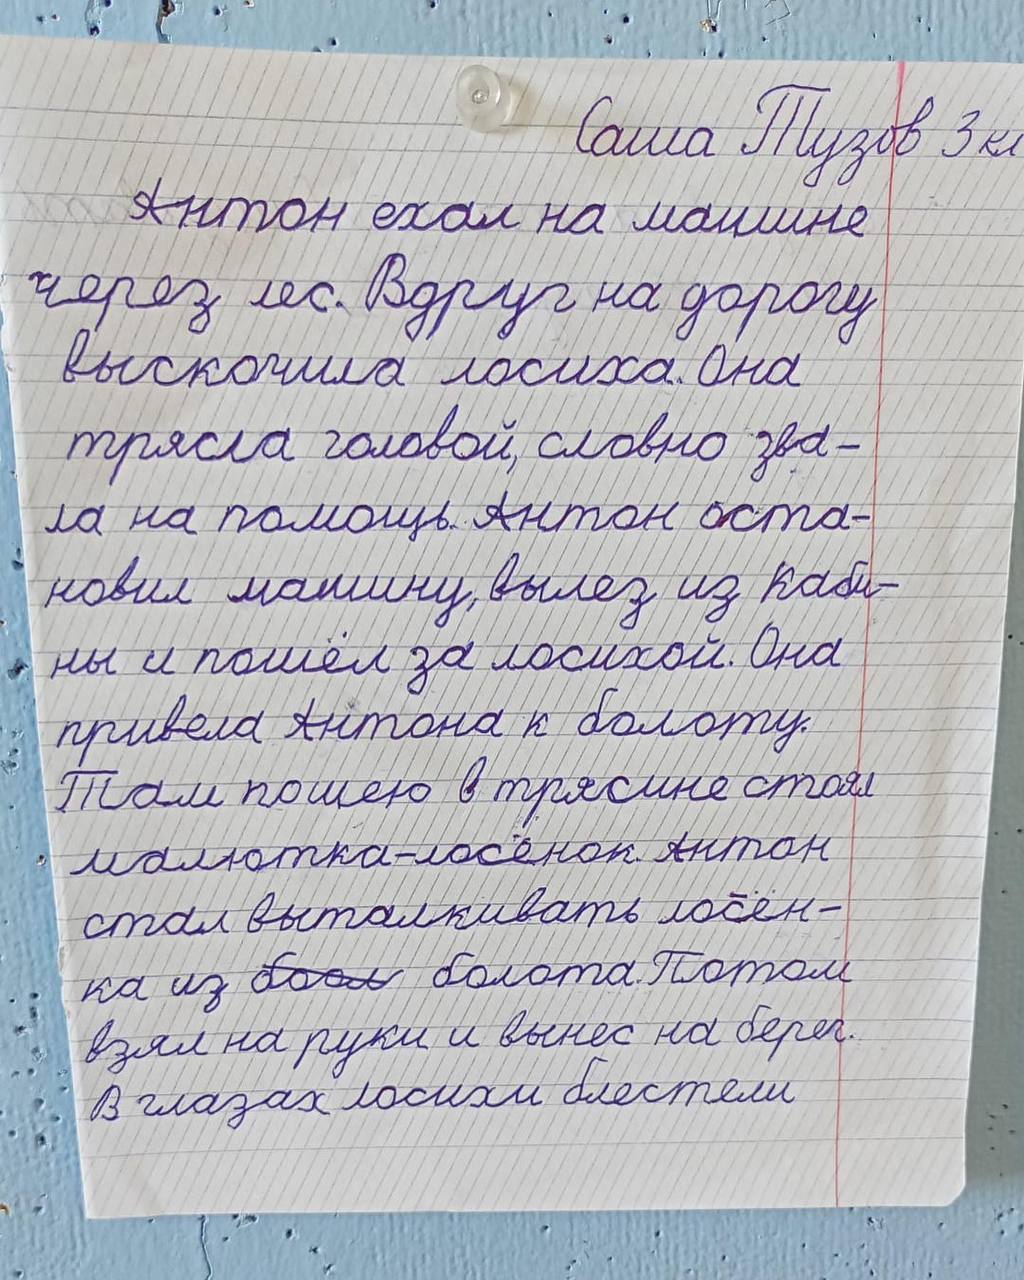 Саша Тузов 3 кл
Антон ехал на машине
через лес. Вдруг на дорогу
выскочила лосиха. Она
трясла головой, словно зва-
ла на помощь. Антон оста-
новил машину, вылез из каби-
ны и пошёл за лосихой. Она
привела Антона к болоту.
Там пошею в трясине стоял
малютка-лосёнок. Антон
стал выталкивать лосён-
ка из болота. Потом
взял на руки и вынес на берег.
В глазах лосихи блестели